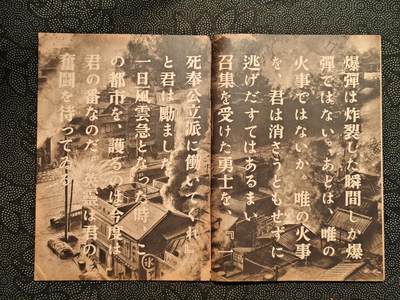 爆彈は炸裂した瞬間しか爆
彈ではない。あとは、唯の
火事ではないか、唯の火事
を、君は消さうともせずに
逃げだすてはあるまい
召集を受けた勇士を、『一
死奉公立派に働いてくれ』
と君は励ました
一旦風雲急となった時、こ
の都市を、護るのは今度は
君の番なのだ は君の
奮闘を待ってゐる